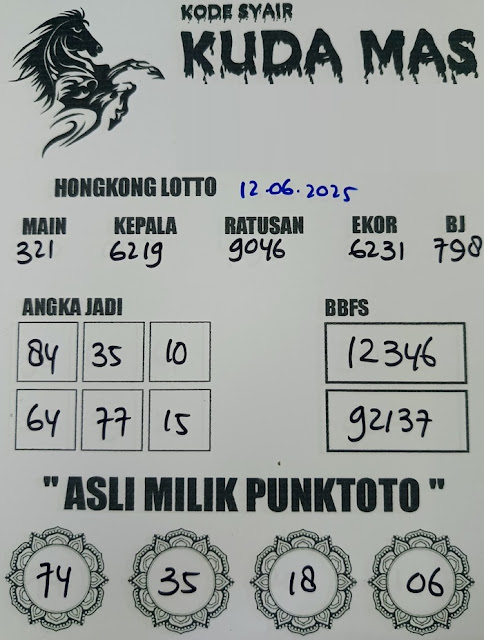 KODE SYAIR
KUDA MAS
HONGKONG LOTTO 12.06.2025
MAIN KEPALA RATUSAN EKOR BJ
321 6219 9046 6231 798
ANGKA JADI BBFS
84 35 10 12346
64 77 15 92137
"ASLI MILIK PUNKTOTO"
74 35 18 06